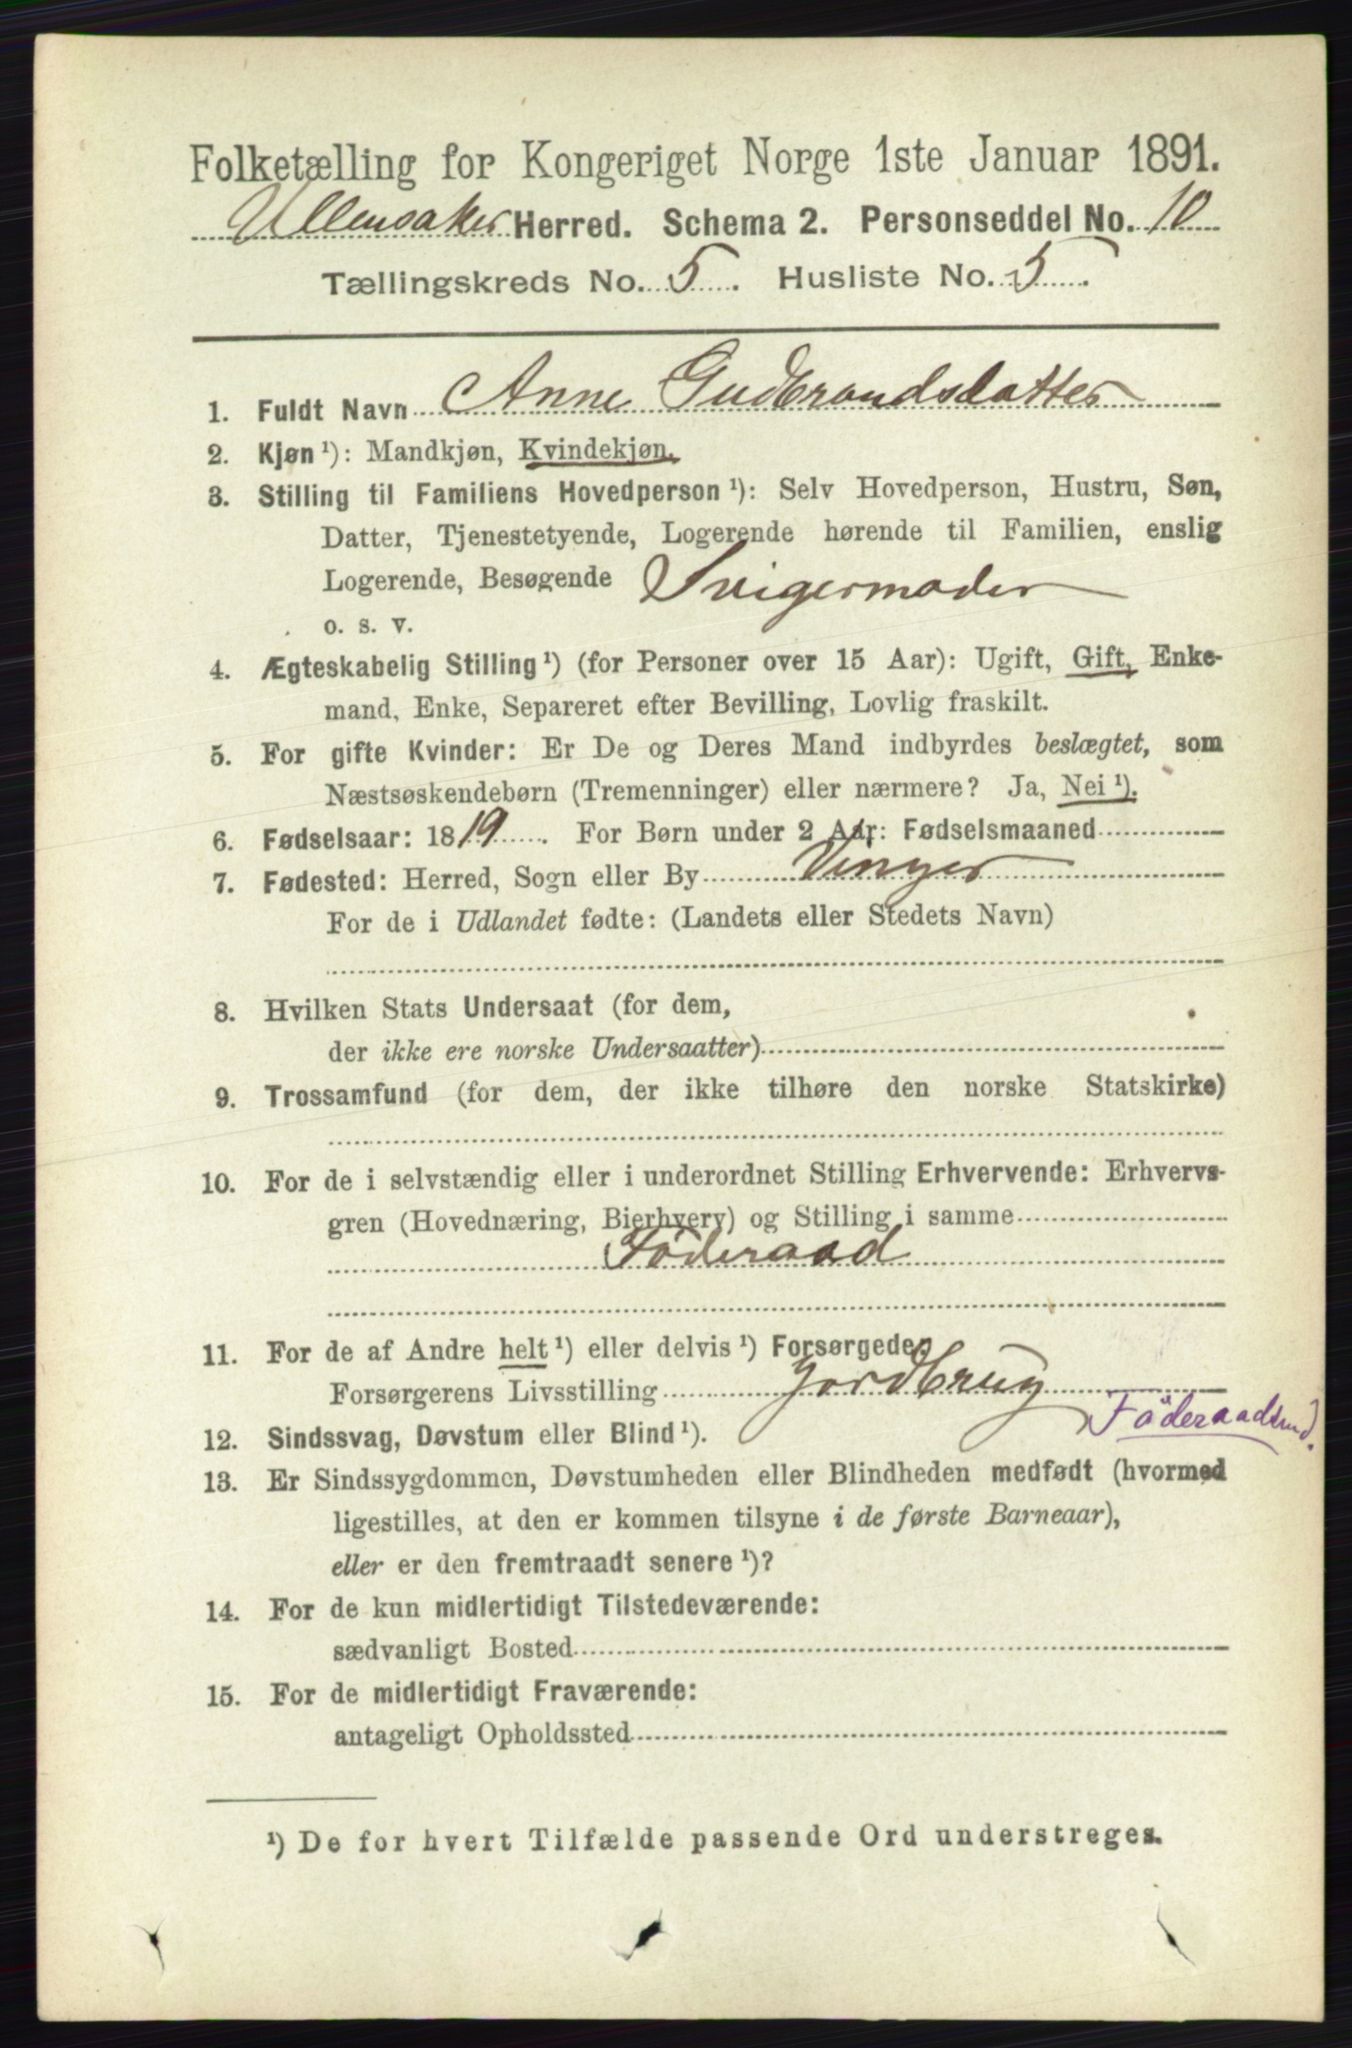 Folketælling for Kongeriget Norge 1ste Januar 1891.
Ullensaker Herred. Schema 2. Personseddel No. 10
Tællingskreds No. 5. Husliste No. 5.
1. Fuldt Navn Anne Gudbrandsdatter
2. Kjøn ¹): Mandkjøn, Kvindekjøn.
3. Stilling til Familiens Hovedperson ¹): Selv Hovedperson, Hustru, Søn,
Datter, Tjenestetyende, Logerende hørende til Familien, enslig
Logerende, Besøgende Svigermoder
o. s. v.
4. Ægteskabelig Stilling ¹) (for Personer over 15 Aar): Ugift, Gift, Enke-
mand, Enke, Separeret efter Bevilling, Lovlig fraskilt.
5. For gifte Kvinder: Er De og Deres Mand indbyrdes beslægtet, som
Næstsøskendebørn (Tremenninger) eller nærmere? Ja, Nei ¹).
6. Fødselsaar: 1819. For Børn under 2 Aar: Fødselsmaaned
7. Fødested: Herred, Sogn eller By Vinger
For de i Udlandet fødte: (Landets eller Stedets Navn)
8. Hvilken Stats Undersaat (for dem,
der ikke ere norske Undersaatter)
9. Trossamfund (for dem, der ikke tilhøre den norske Statskirke)
10. For de i selvstændig eller i underordnet Stilling Erhvervende: Erhvervs-
gren (Hovednæring, Bierhverv) og Stilling i samme
Föderaad
11. For de af Andre helt ¹) eller delvis ¹) Forsørgede:
Forsørgerens Livsstilling Jordbrug
Föderaadsmd.
12. Sindssvag, Døvstum eller Blind ¹).
13. Er Sindssygdommen, Døvstumheden eller Blindheden medfødt (hvormed
ligestilles, at den er kommen tilsyne i de første Barneaar),
eller er den fremtraadt senere ¹)?
14. For de kun midlertidigt Tilstedeværende:
sædvanligt Bosted
15. For de midlertidigt Fraværende:
antageligt Opholdssted
¹) De for hvert Tilfælde passende Ord understreges.